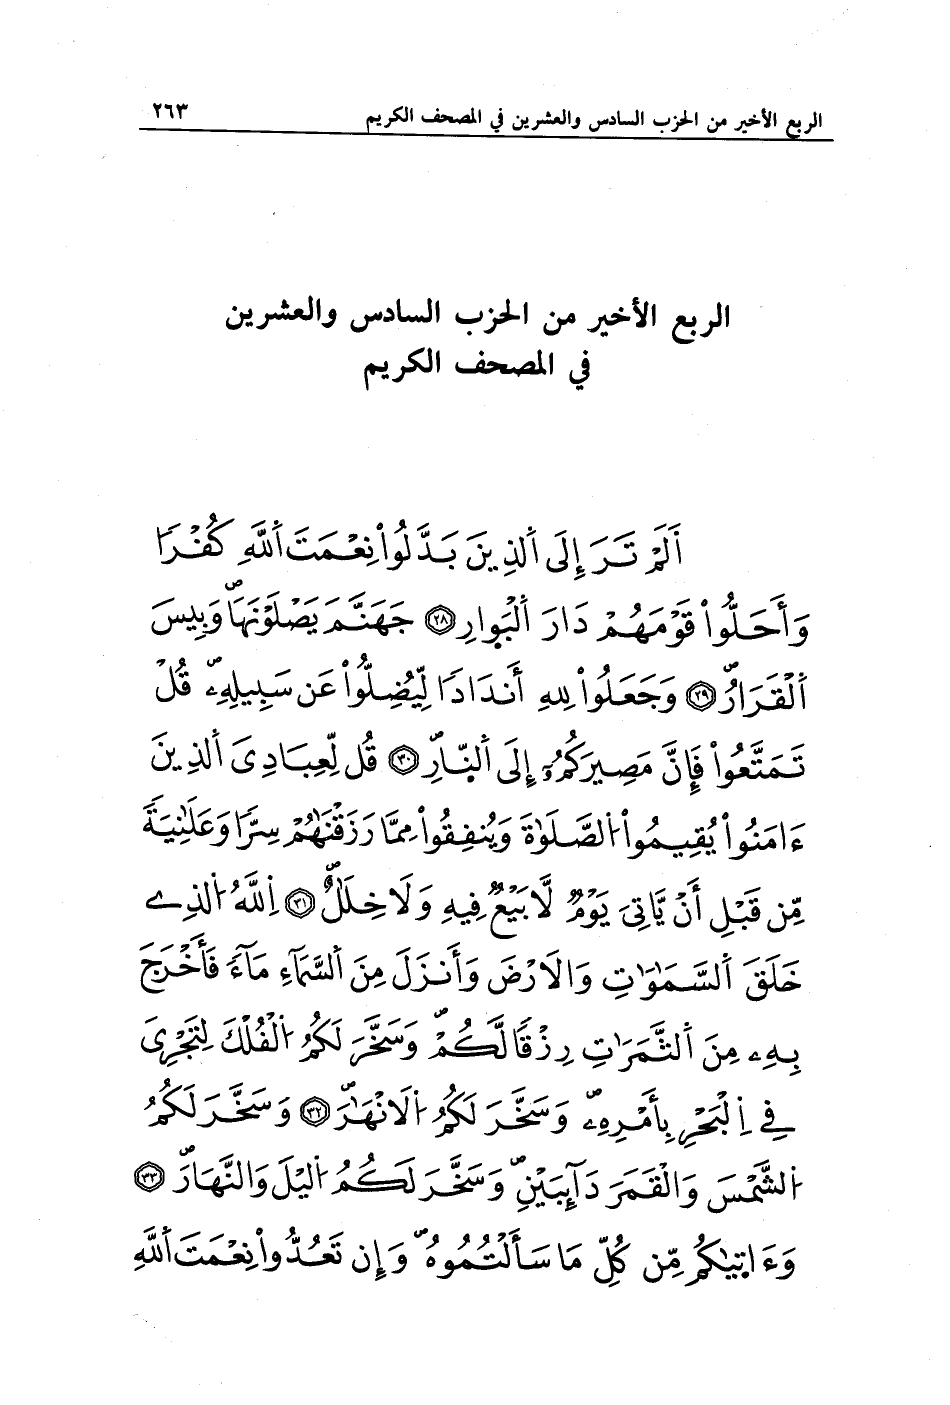 الربع الأخير من الحزب السادس والعشرين في المصحف الكريم ٢٦٣
الربع الأخير من الحزب السادس والعشرين
في المصحف الكريم
أَلَمْ تَرَ إِلَى ٱلذِينَ بَدَّلُواْ نِعْمَتَ ٱللَّهِ كُفْرٗا
وَأَحَلُّواْ قَوْمَهُمْ دَارَ ٱلْبَوِارِ ٢٨ جَهَنَّمَ يَصْلَوْنَهَاۖ وَبِيسَ
ٱلْقَرَارُۖ ٢٩ وَجَعَلُواْ لِلهِ أَندَادٗا لِّيُضِلُّواْ عَن سَبِيلِهِۦۖ قُلْ
تَمَتَّعُواْ فَإِنَّ مَصِيرَكُمُۥٓ إِلَى ٱلنّ۪ارِۖ ٣٠ قُل لِّعِبَادِىَ ٱلذِينَ
ءَامَنُواْ يُقِيمُواْ ٱلصَّلَوٰةَ وَيُنفِقُواْ مِمَّا رَزَقْنَٰهُمْ سِرّٗا وَعَلَٰنِيَةٗ
مِّن قَبْلِ أَنْ يَّاتِىَ يَوْمٞ لَّا بَيْعٞ فِيهِ وَلَا خِلَٰلٌۖ ٣١ اِ۬للَّهُ ٱلذِے
خَلَقَ ٱلسَّمَٰوَٰتِ وَالَارْضَ وَأَنزَلَ مِنَ ٱلسَّمَآءِ مَآءٗ فَأَخْرَجَ
بِهِۦ مِنَ ٱلثَّمَرَٰتِ رِزْقٗا لَّكُمْۖ وَسَخَّرَ لَكُمُ ٱلْفُلْكَ لِتَجْرِىَ
فِے اِ۬لْبَحْرِ بِأَمْرِهِۦۖ وَسَخَّرَ لَكُمُ ٱلَانْهَٰرَۖ ٣٢ وَسَخَّرَ لَكُمُ
ٱلشَّمْسَ وَالْقَمَرَ دَآئِبَيْنِۖ وَسَخَّرَ لَكُمُ ٱليْلَ وَالنَّهَارَۖ ٣٣
وَءَاتِيٰكُم مِّن كُلِّ مَا سَأَلْتُمُوهُۖ وَإِن تَعُدُّواْ نِعْمَتَ ٱللَّهِ